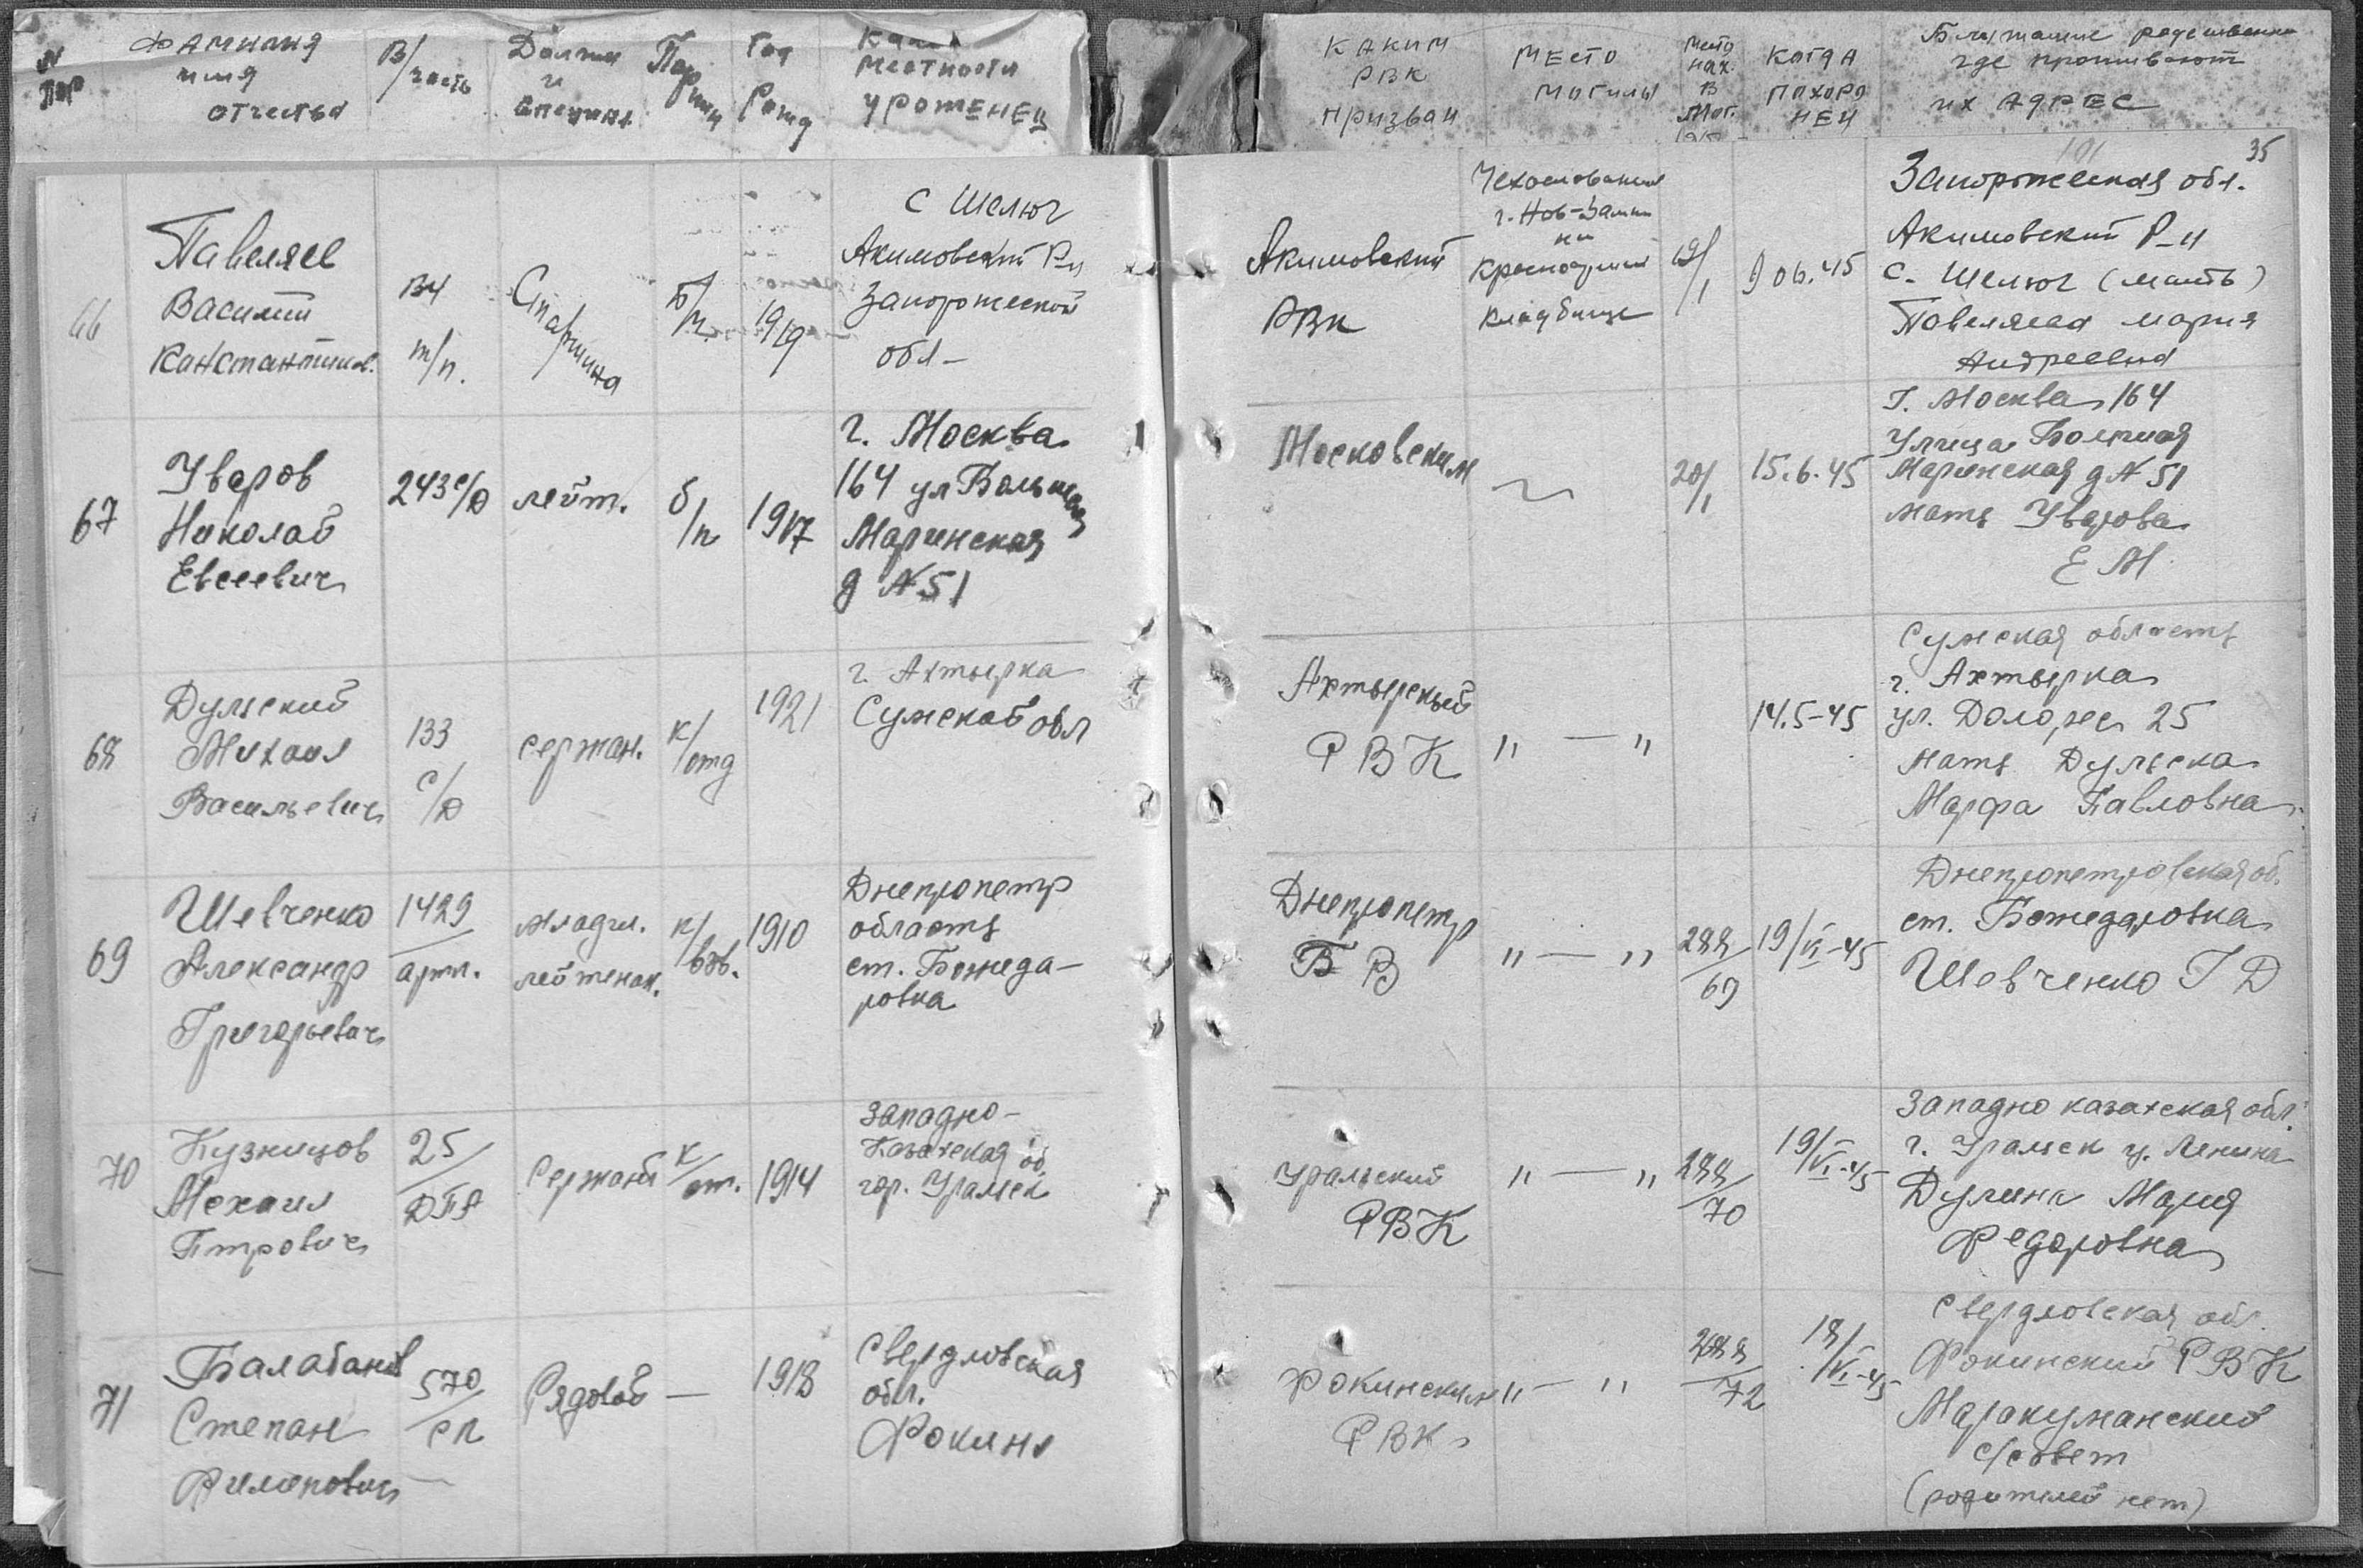 №
пор
Фамилия
имя
отчества
В/часть
Должн
и
специал
Пар
тии
Год
Рожд
Какой
местности
уроженец
66
Павеляев
Василий
Канстантинов.
ВЧ
п/п.
Старшина
Б/п.
1919
с Шелюг
Акимовский Р-н
Запорожской
обл-
67
Уваров
Николай
Евсеевич
243 с/д
лейт.
б/п
1917
г. Москва
164 ул Большая
Маринская
д №51
68
Дульский
Михаил
Васильевич
133
с/д
сержан.
к/отд
1921
г. Ахтырка
Сумской обл
69
Шевченко
Александр
Григорьевич
1429
арт.
младш.
лейтенан.
к/взв.
1910
Днепропетр
область
ст. Божеда-
ровка
70
Кузницов
Михаил
Птрович
25
Сержант
к/от.
1914
Западно-
Казахская об.
гор. Уральск
71
Балабанов
Степан
Филипович
570
сп
Рядовой —
1918
Свердловская
обл.
Фокино
Каким
РВК
призван
Место
могилы
место
нах.
в
мог.
Когда
похоро
нен
Ближашие родственни
где проживают
их адрес
191
35
Акимовский
РВК
Чехословакия
г. Нов-Замки
кладбище
19/1
9 06.45
Запорожская обл.
Акимовский Р-н
с. Шелюг (мать)
Павеляева мария
Андреевна
Московским
20/1
15.6.45
Г. Москва 164
Улица Большая
Маринская д №51
мать Уварова
Е М.
Ахтырский
РВК
" — "
14.5-45
Сумская область
г. Ахтырка
ул. Долорес 25
мать Дульска
Марфа Павловна
Днепропетр
Б В
" — "
288
69
19/VI-45
Днепропетровская об.
ст. Божедаровка
Шевченко Г Д
Уральский
РВК
" — "
288
70
19/VI-45
Западно казахская обл.
г. Уральск у. Ленина
Дулина Мария
Федоровна
Фокинским
РВК
" — "
288
72
18/VI-45
Свердловская обл.
Фокинский РВК
с/совет
(родителей нет)